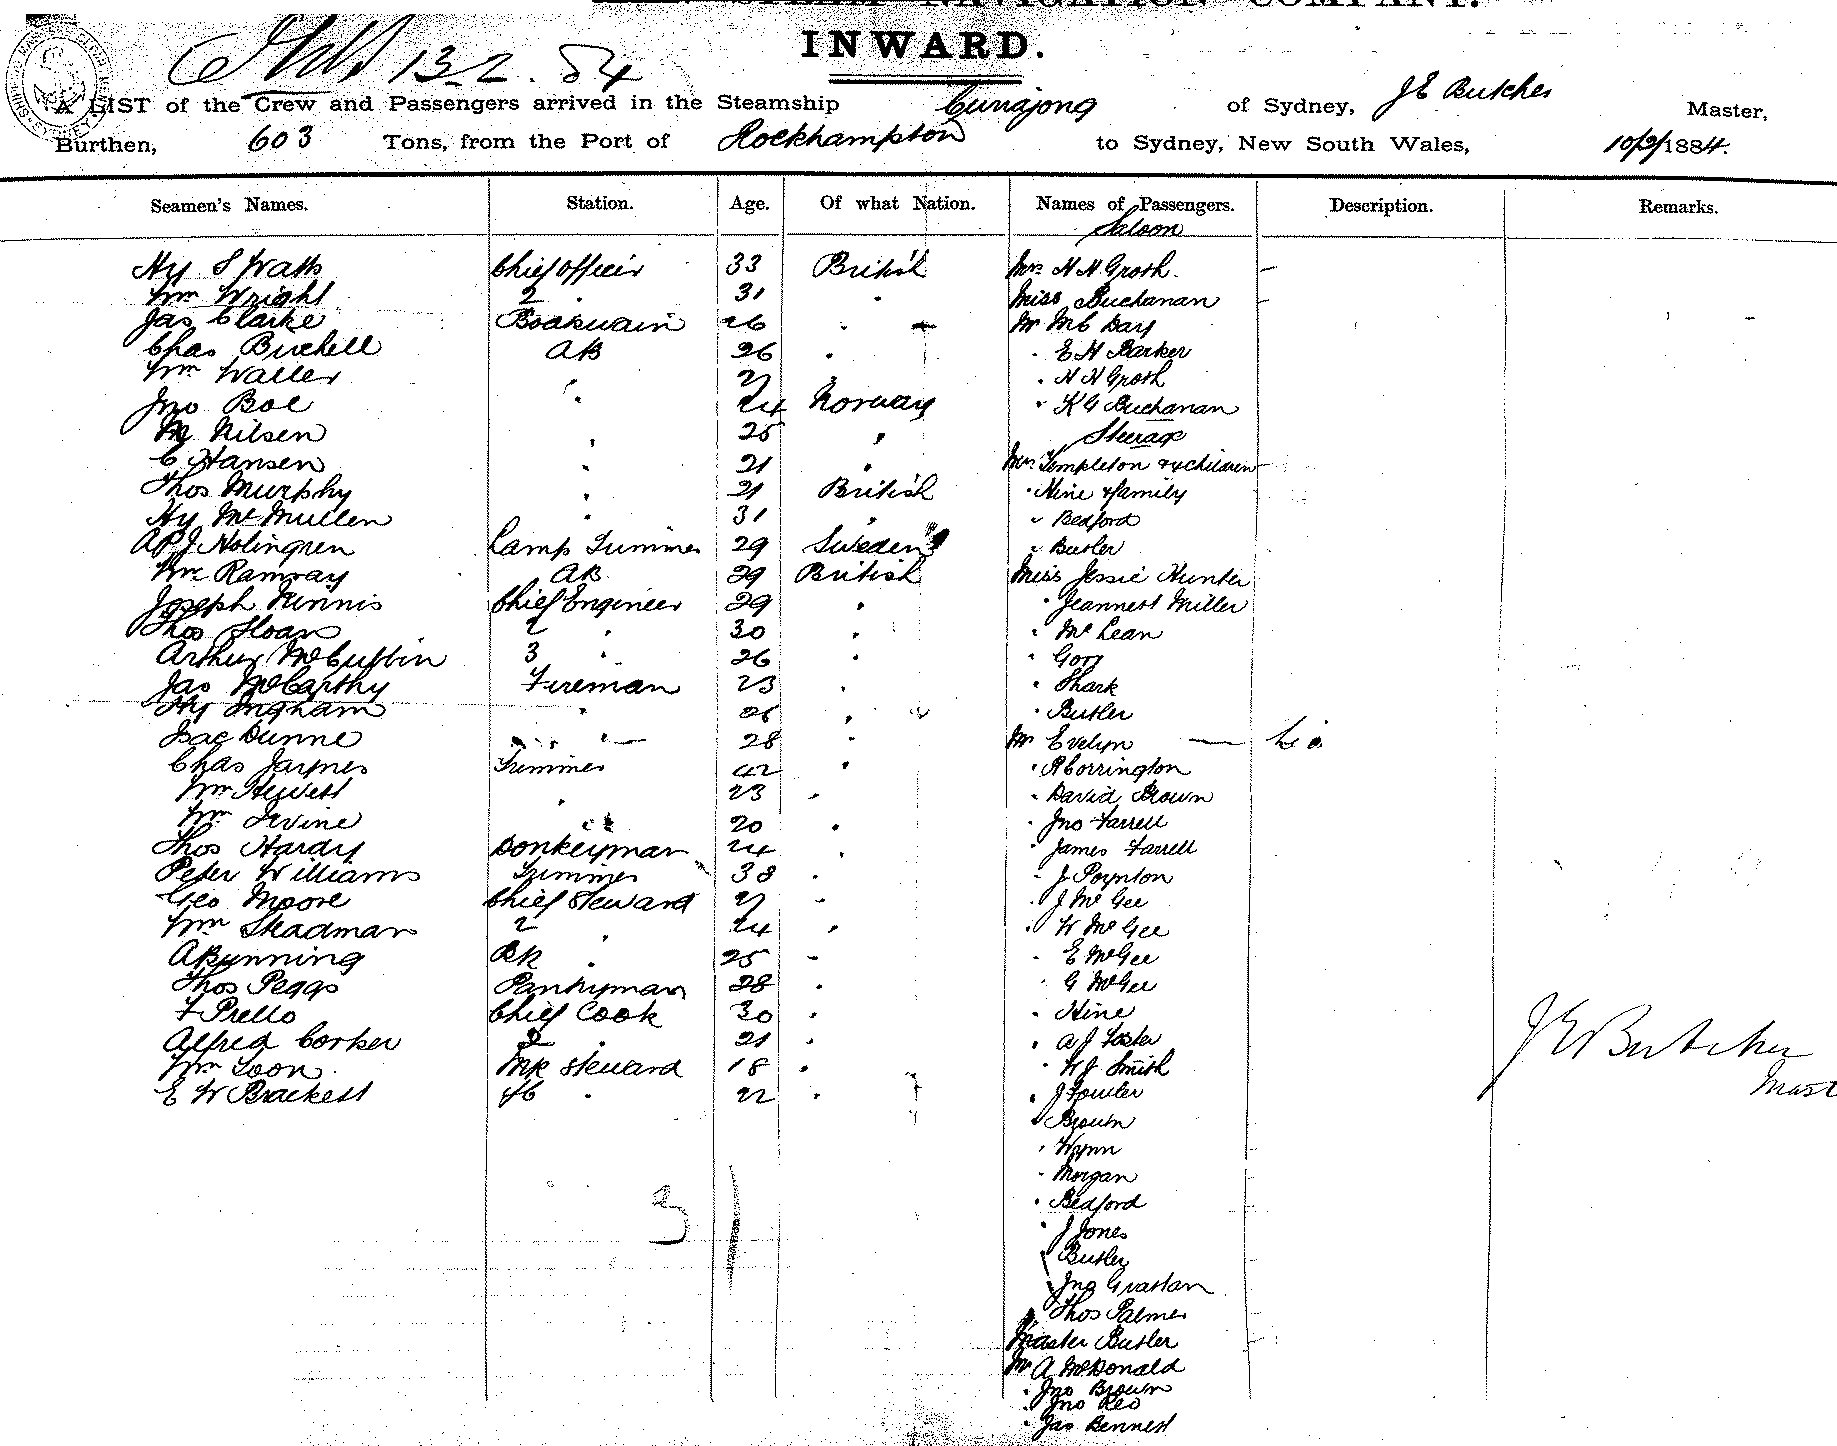 NAVIGATION COMPANY.
INWARD.
13.2.84
A LIST of the Crew and Passengers arrived in the Steamship Currajong of Sydney, J E Butcher Master,
Burthen, 603 Tons, from the Port of Rockhampton to Sydney, New South Wales, 10/2/1884.
Seamen's Names. Station. Age. Of what Nation. Names of Passengers. Description. Remarks.
Saloon
Hy S Watts Chief Officer 33 British Mrs H N Groth
Wm Wright 2 " 31 " Miss Buchanan
Jas Clarke Boatswain 26 " Mr Day
Chas Burchell AB 26 " " E H Barker
Wm Waller " 27 " " H N Groth
Jno Boe " 24 Norway " K G Buchanan
M Nilsen " 25 " Steerage
C Hansen " 21 " Mrs Templeton & 4 children
Thos Murphy " 21 British " Hine & family
Hy McMullen " 31 " " Bedford
A P J Holingren Lamp Trimmer 29 Sweden " Butler
Wm Ramsay AB 29 British Miss Jessie Hunter
Joseph Chief Engineer 29 " " Jeannest Miller
Thos Sloan 2 " 30 " " McLean
Arthur McCubbin 3 " 26 " "
Jas McCarthy Fireman 23 " " Shark
Hy Ingham " 26 " " Butler
Isac Dunne " 28 " Mr Evelyn
Chas Jaynes Trimmer 42 " " R Corrington
Wm Hewett " 23 " " David Brown
Wm Irvine " 20 " " Jno Farrell
Thos Hardy Donkeyman 24 " " James Farrell
Peter Williams Trimmer 38 " " J Poynton
Geo Moore Chief Steward 27 " " J McGee
Wm Steadman 2 " 24 " " W McGee
A Bunning BK " 25 " " E McGee
Thos Peggs Pantryman 28 " " G McGee
F Prello Chief Cook 30 " " Hine
Alfred Corker 2 " 21 " " A J Foster
Wm Toon Mk Steward 18 " " W J Smith
E W Brackett " 22 " " J Fowler
" Brown
" Wynn
" Morgan
" Bedford
" J Jones
" Butler
" Jno Grattan
" Thos Palmer
Master Butler
Mr A McDonald
" Jno Brown
" Jno Reo
" Jas Bennett
31
J E Butcher
Mast